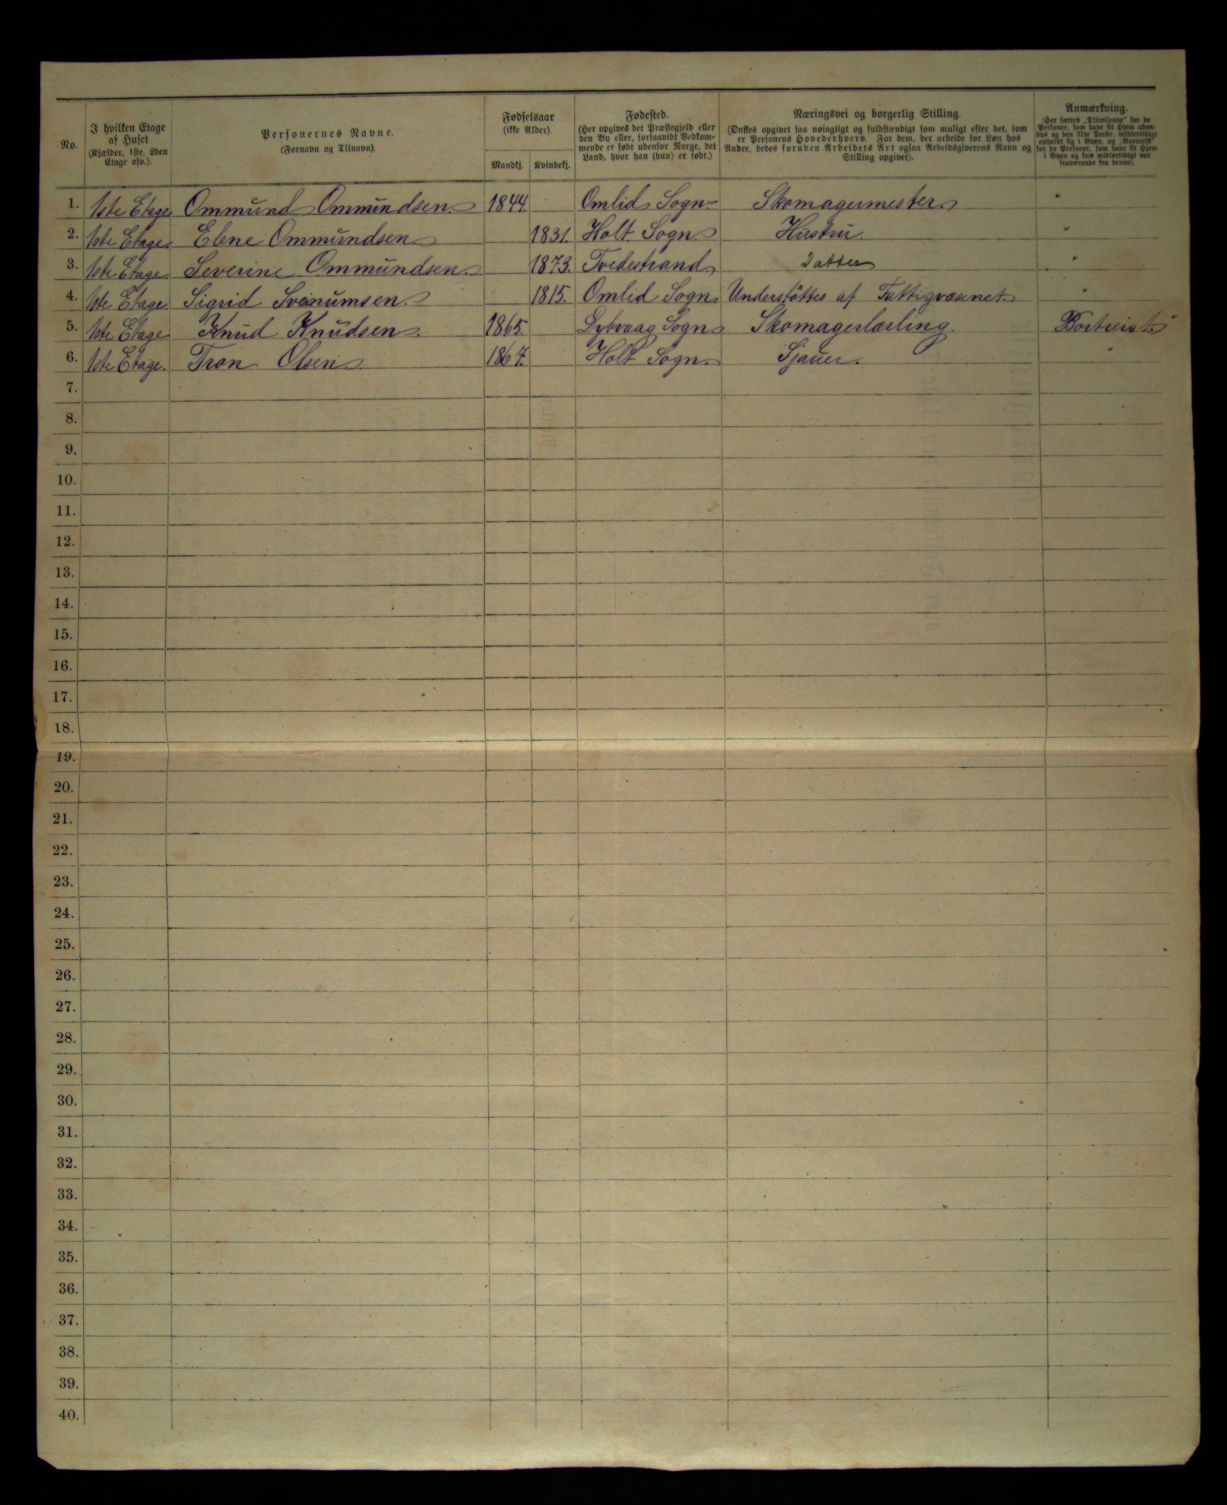 No.
I hvilken Etage
af Huset
(Kjælder, 1ste, 2den
Etage osv.).
Personernes Navne.
(Fornavn og Tilnavn).
Fødselsaar
(ikke Alder).
Mandkj. Kvindekj.
Fødested.
(Her opgives det Præstegjeld eller
den By eller, forsaavidt Vedkom-
mende er født udenfor Norge, det
Land, hvor han (hun) er født.)
Næringsvei og borgerlig Stilling.
(Ønskes opgivet saa nøiagtigt og fuldstændigt som muligt efter det, som
er Personens Hovederhverv. For dem, der arbeide for Løn hos
Andre, bedes foruden Arbeidets Art ogsaa Arbeidsgiverens Navn og
Stilling opgivet).
Anmærkning.
(Her sættes „Tilreisende" for de
Personer, som have sit Hjem uden-
bys og den 31te Decbr. midlertidigt
opholdt sig i Byen, og „Bortreist"
for de Personer, som have sit Hjem
i Byen og kun midlertidigt var
fraværende fra denne).
1. 1ste Etage Ommund Ommundsen 1844. Omlid Sogn Skomagermester "
2. 1ste Etage. Elene Ommundsen 1831. Holt Sogn Hustru. "
3. 1ste Etage Severine Ommundsen 1873. Tvedestrand Datter "
4. 1ste Etage Sigrid 1815. Omlid Sogn Understøttes af Fattigvæsenet. "
5. 1ste Etage Knud Knudsen 1865. Dybvaag Sogn Skomagerlærling Bortreist.
6. 1ste Etage. Tron Olsen 1867. Holt Sogn. Sjauer. "
7.
8.
9.
10.
11.
12.
13.
14.
15.
16.
17.
18.
19.
20.
21.
22.
23.
24.
25.
26.
27.
28.
29.
30.
31.
32.
33.
34.
35.
36.
37.
38.
39.
40.